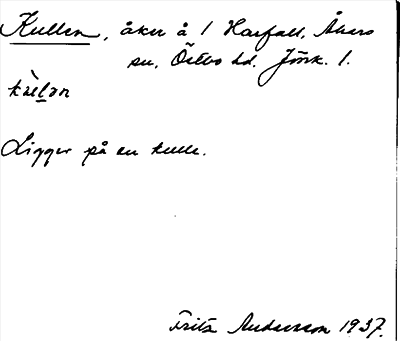 Kullen, åker å 1 Harfall, Åkers
sn, Östbo hd. Jönk. l.
kɯ̀lən
Ligger på en kulle.
Fritz Andersson 1937.